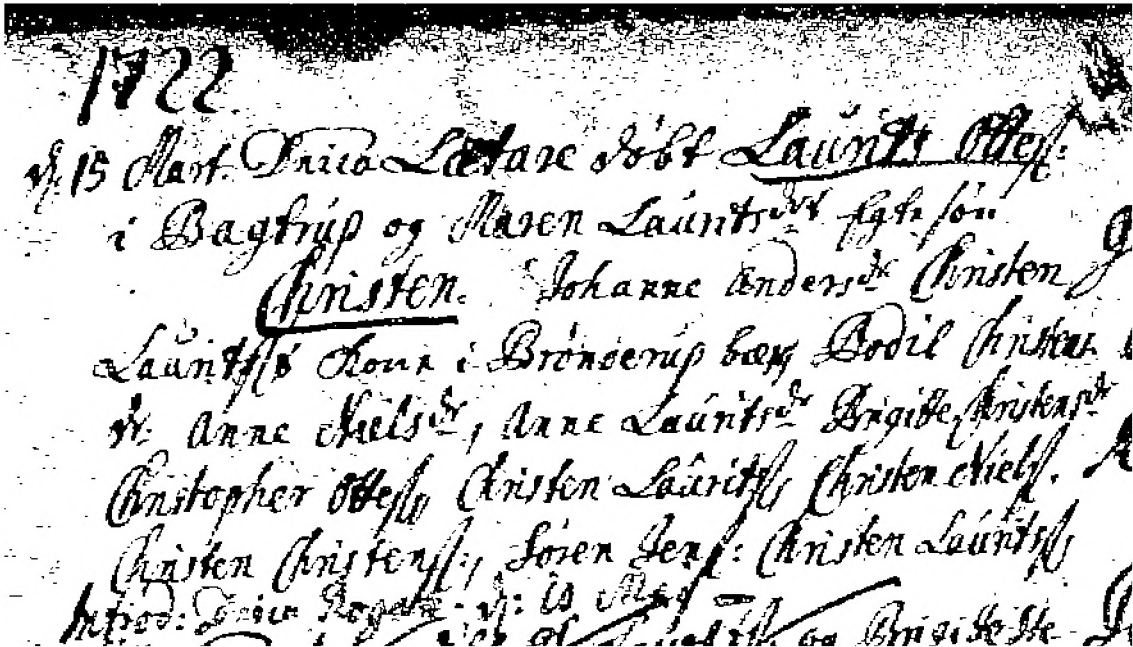 1722.
d. 15 Mart. Dnica Lætare döbt Laurits Ottess:
i Bagtrup og Maren Lauritsdrs Egte søn
Christen. Johanne Andersdr Christen
Lauritss Kone i Brönderup bær, Bodil Christens
dr. Anne Nielsdr, Anne Lauritsdr Brigitte Christensdr
Christopher Ottess, Christen Lauritss, Christen Nielss.
Christen Christenss:, Sören Jenss: Christen Lauritss
Introd: Dnica Rogate d: 10 May
og Brigitte